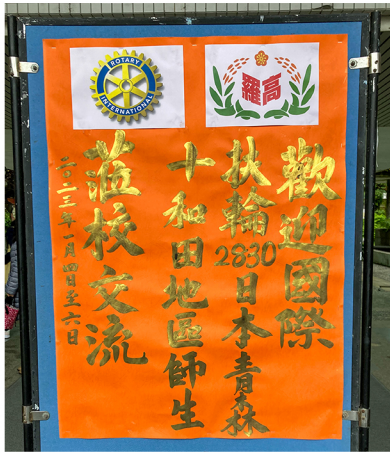 ROTARY
INTERNATIONAL
羅高
歡迎國際
扶輪2830日本青森
十和田地區師生
蒞校交流
二〇二三年一月四日至六日